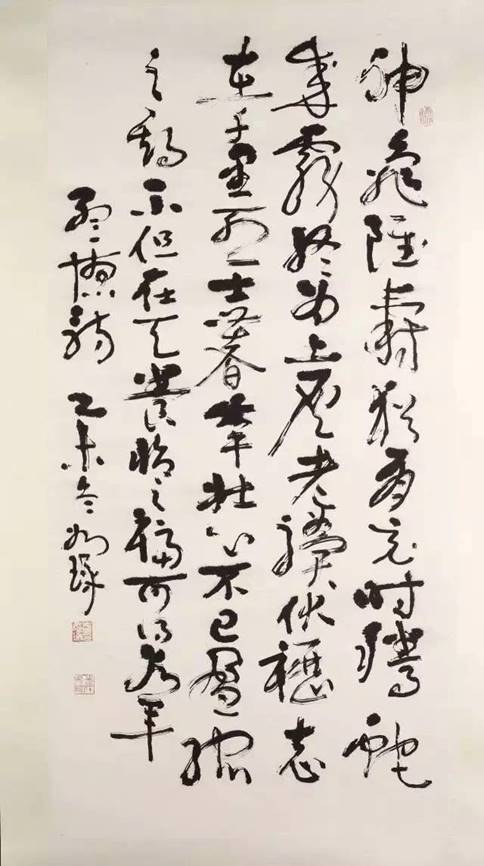 神龜雖壽猶有竟時騰蛇
乘霧終為土灰老驥伏櫪志
在千里烈士暮年壯心不已盈縮
之期不但在天養怡之福可得永年
詩 乙未冬